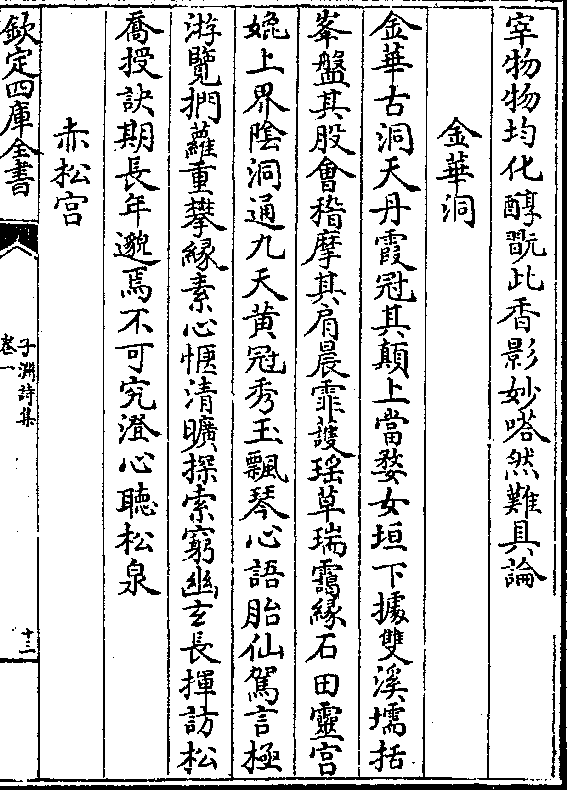 宰物物均化醇翫此香影妙嗒然難具論
金華洞
金華古洞天丹霞冠其顛上當婺女垣下據雙溪壖括
峯盤其股會稽摩其肩晨霏䕶瑶草瑞靄縁石田靈宮
娩上界陰洞通九天黄冠秀玉飄琴心語胎仙駕言極
游覽捫蘿重攀縁素心愜清曠探索窮幽玄長揮訪松
喬授訣期長年邈焉不可究澄心聽松泉
赤松宫
欽定四庫全書
子淵詩集
卷一
十二